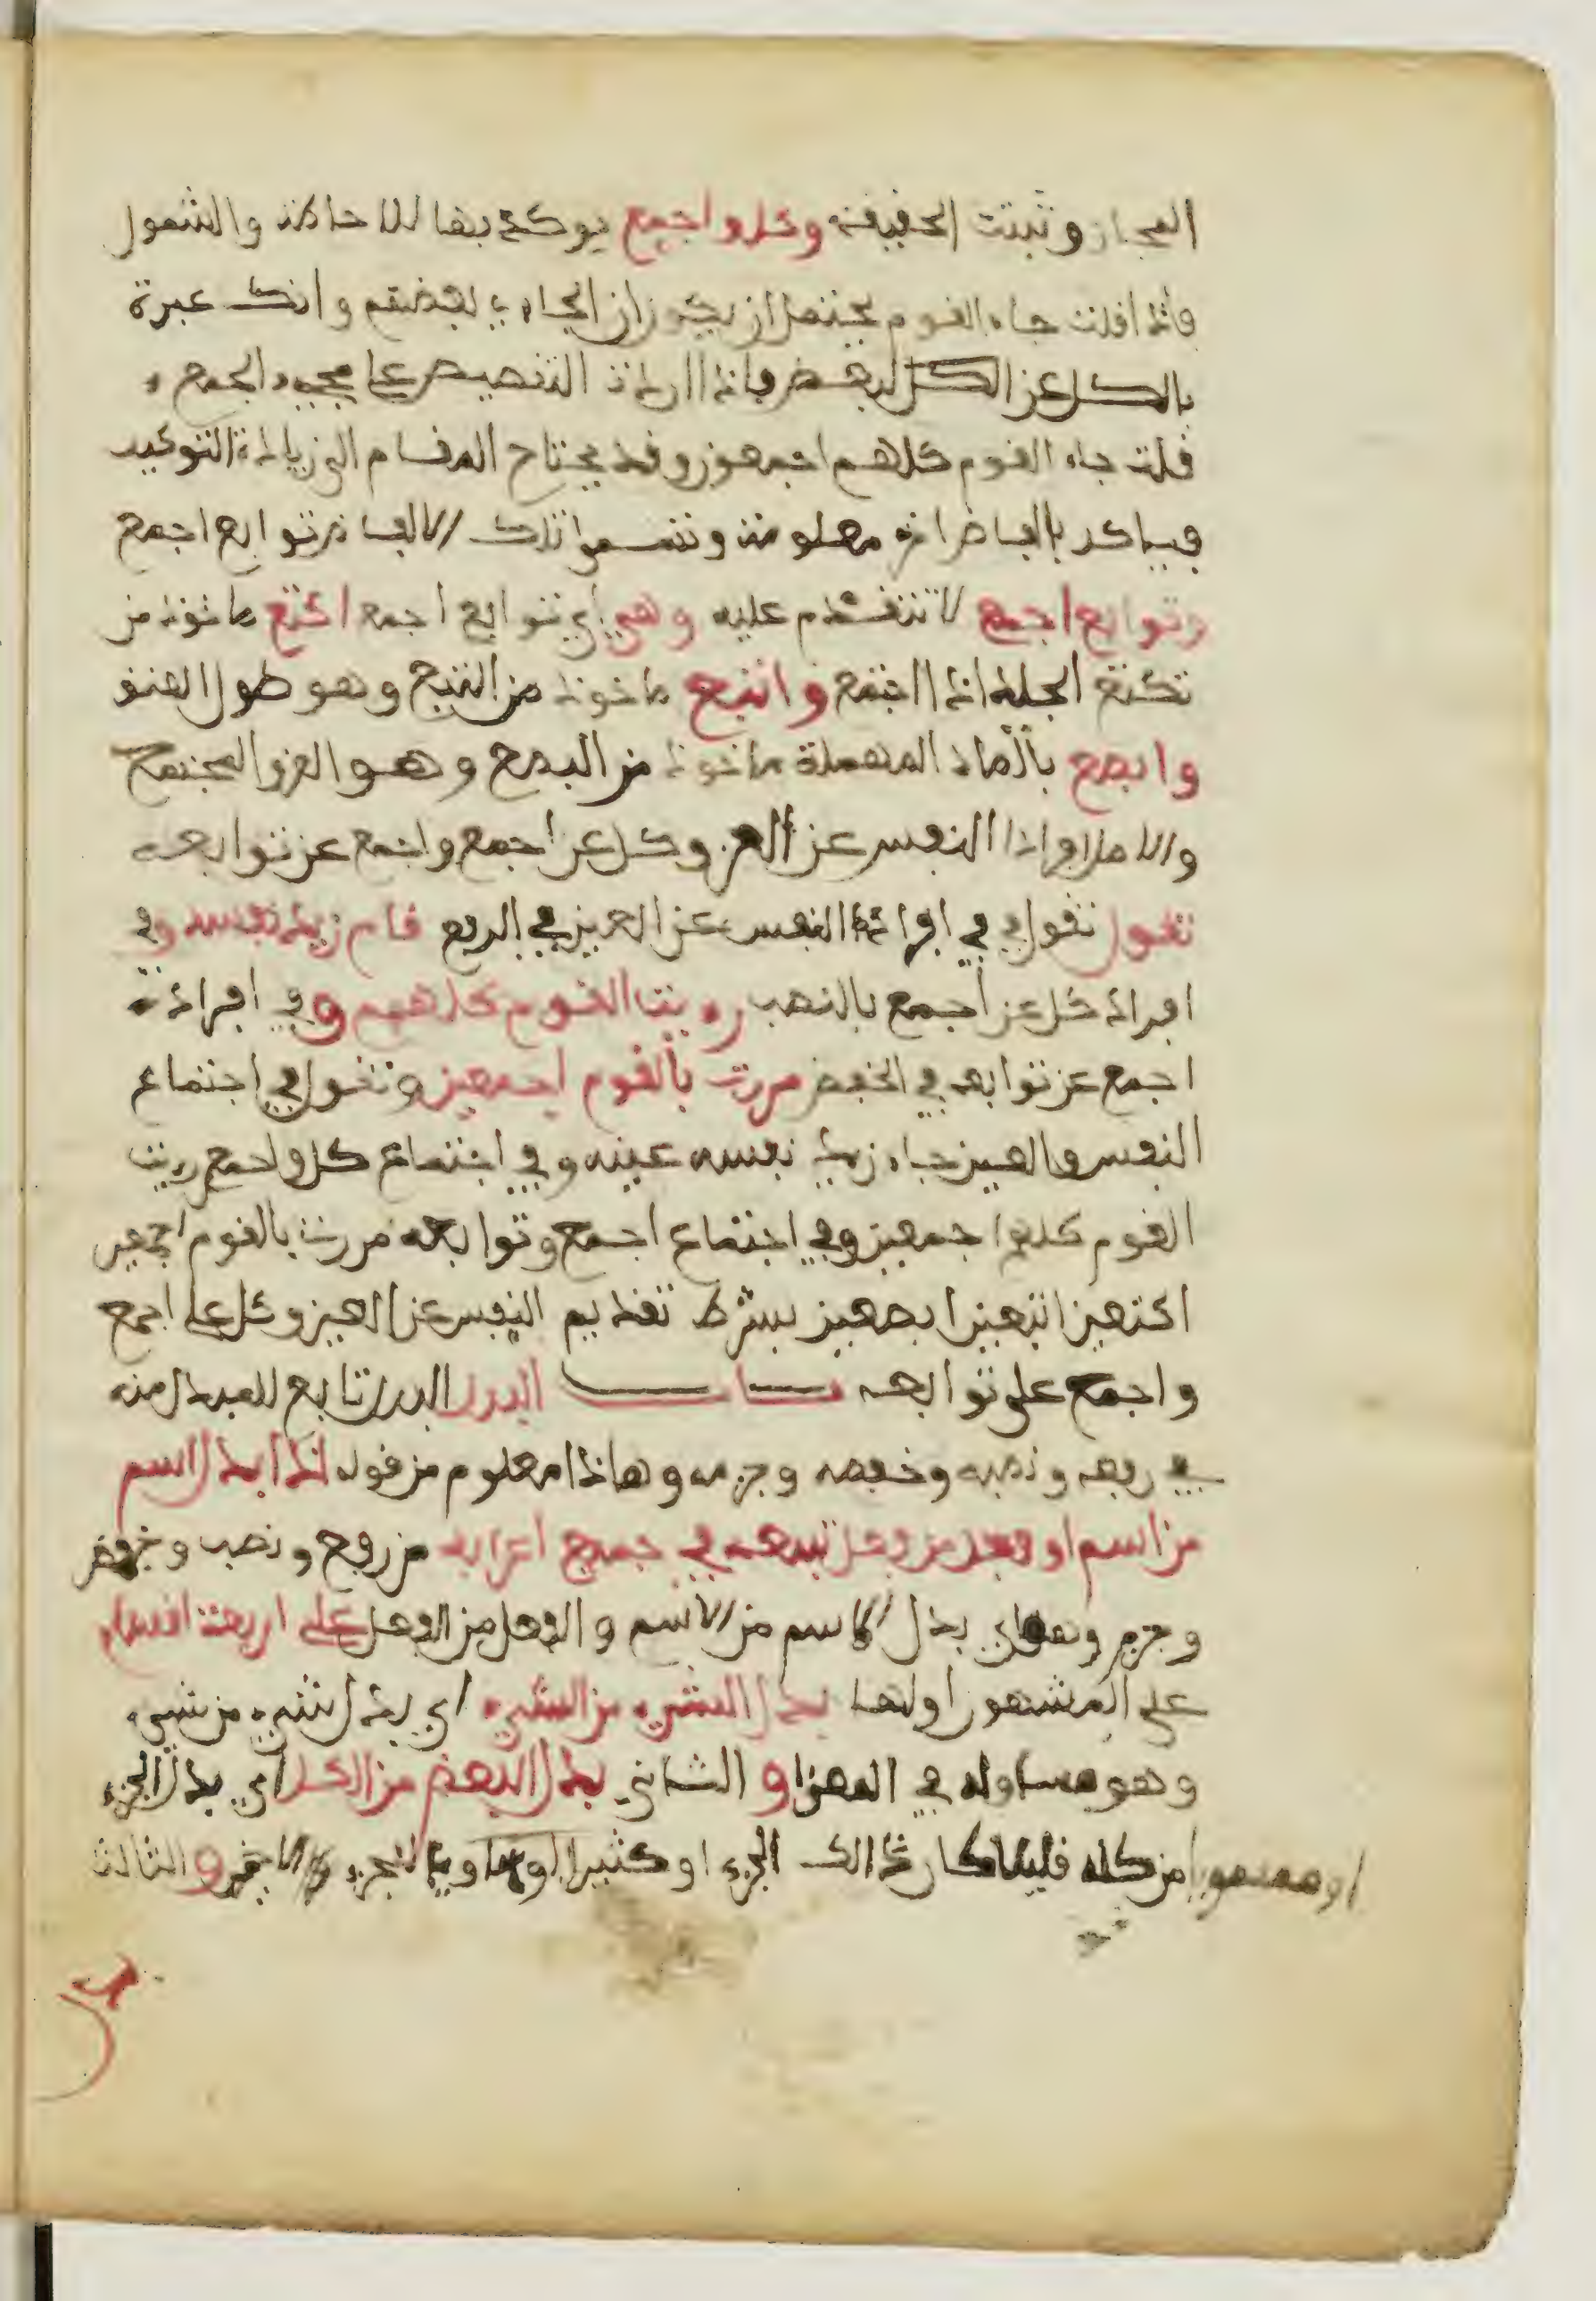 المجاز وتبثت الحقيقة وكل واجمع يوكد بهما للاحاطة والشمول
فاذا قلت جاء القوم يحتمل ان يكون ان الجاءي بعضهم وانك عبرة
بالكل عن الكل البعض فاذا اردت التنصيص على مجيء الجمع
قلت جاء القوم كلهم اجمعون وقد يحتاج المقام الى زيادة التوكيد
فياكد بالفاظ اخر معلومة وتسموا تلك الالفاظ توابع اجمع
وتوابع اجمع لا تتقدم عليه وهي اي توابع اجمع اكتع ماخوذ من
تكتع الجلد اذا اجتمع وابتع ماخوذ من البتع وهو طول العنق
وابصع بالصاد المهملة ماخوذ من البصع وهو العرق المجتمع
والاصل افراد النفس عن العين وكل عن اجمع واجمع عن توابعه
تقول تقول في افراد النفس عن العين في الرفع قام زيد نفسه وفي
افراد كل عن اجمع بالنصب رءيت القوم كلهم وفي افراد
اجمع عن توابعه في الخفض مررت بالقوم اجمعين وتقول في اجتماع
النفس والعين جاء زيد نفسه عينه وفي اجتماع كل واجمع رءيت
القوم كلهم اجمعين وفي اجتماع اجمع وتوابعه مررت بالقوم اجمعين
اكتعين ابتعين ابصعين بشرط تقديم النفس عن العين وكل على اجمع
واجمع على توابعه باب البدل البدل تابع للمبدل منه
في رفعه ونصبه وخفضه وجزمه وهاذا معلوم من قوله اذا ابدل اسم
من اسم او فعل من فعل تبعه في جميع اعرابه من رفع ونصب وخفض
وجزم وهو اي بدل الاسم من الاسم والفعل من الفعل على اربعة اقسام
على المشهور اولها بدل الشيء من الشيء اي بدل شيء من شيء
وهو مساو له في المعنى و الثاني بدل البعض من الكل اي بدل الجزء
من كله قليلا كان ذالك الجزء او كثيرا او مساويا للجزء الاخر والثالث